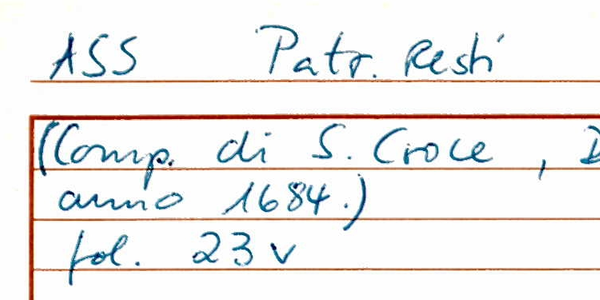 ASS Patr. Resti
(Comp. di S. Croce, D
anno 1684.)
fol. 23 v